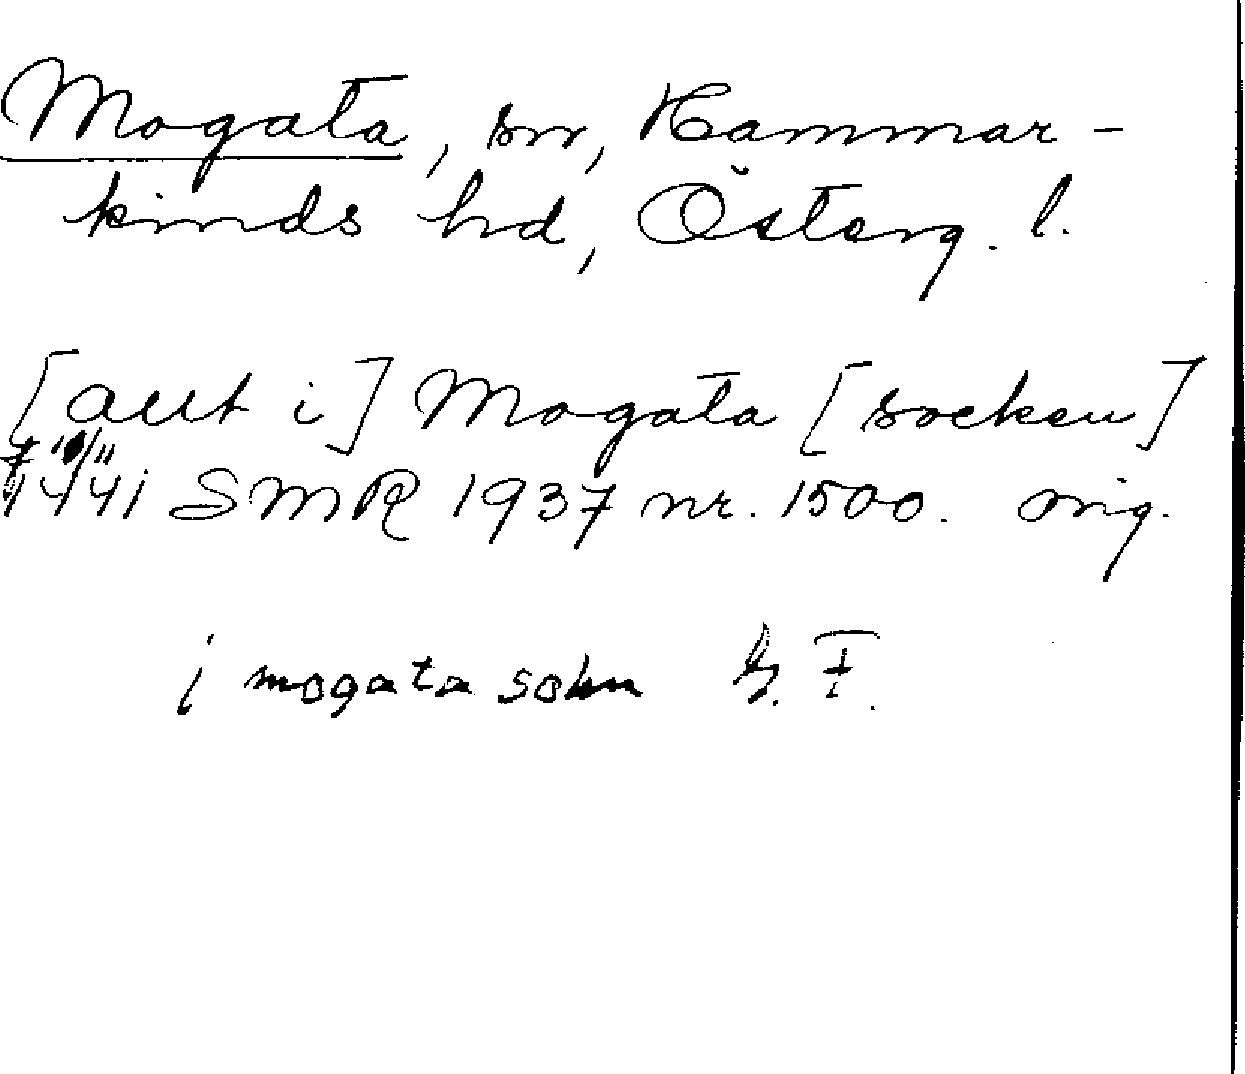 Mogata, sn, Hammar-
kinds hd, Österg. l.
[allt i] Mogata [socken]
1441 SMR 1937 nr. 1500. orig.
i mogata sokn G. F.